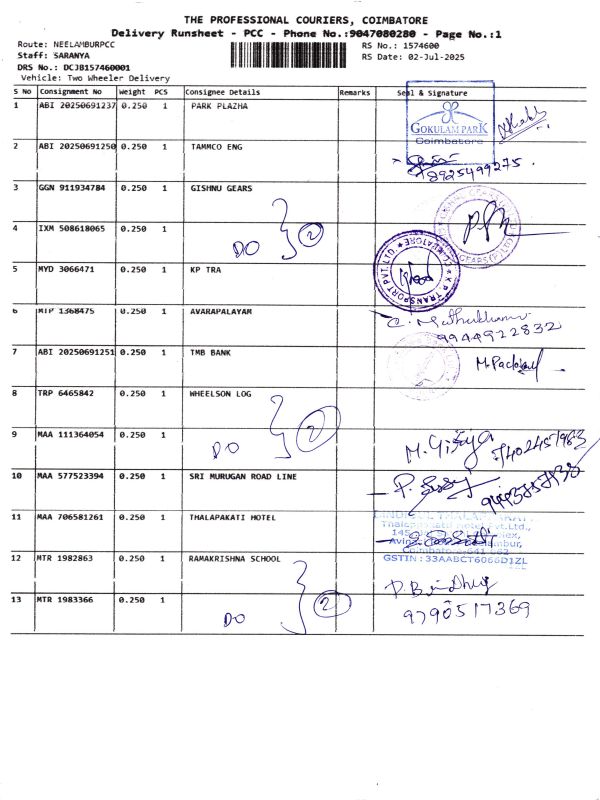 THE PROFESSIONAL COURIERS, COIMBATORE
Delivery Runsheet - PCC - Phone No.:9047080280 - Page No.:1
Route: NEELAMBURPCC RS No.: 1574600
Staff: SARANYA RS Date: 02-Jul-2025
DRS No.: DCJB157460001
Vehicle: Two Wheeler Delivery
S No Consignment No Weight PCS Consignee Details Remarks Seal & Signature
1 ABI 20250691237 0.250 1 PARK PLAZHA
GOKULAM PARK
Coimbatore
2 ABI 20250691250 0.250 1 TAMMCO ENG
8925499275.
3 GGN 911934784 0.250 1 GISHNU GEARS
4 IXM 508618065 0.250 1 DO 2
5 MYD 3066471 0.250 1 KP TRA
6 MTP 1368475 0.250 1 AVARAPALAYAM
9944922832
7 ABI 20250691251 0.250 1 TMB BANK
8 TRP 6465842 0.250 1 WHEELSON LOG
9 MAA 111364054 0.250 1 DO 2
10 MAA 577523394 0.250 1 SRI MURUGAN ROAD LINE
11 MAA 706581261 0.250 1 THALAPAKATI HOTEL
GSTIN : 33AABCT6066D1ZL
12 MTR 1982863 0.250 1 RAMAKRISHNA SCHOOL
13 MTR 1983366 0.250 1 DO 2
9790517369